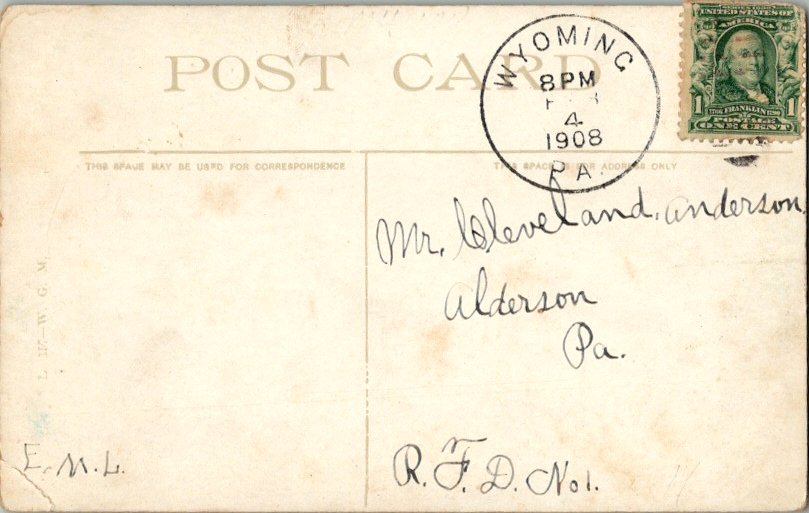 POST CARD
WYOMING
8PM
FEB
4
1908
PA.
UNITED STATES OF
AMERICA
1 FRANKLIN 1
POSTAGE
ONE CENT
THIS SPACE MAY BE USED FOR CORRESPONDENCE
THIS SPACE IS FOR ADDRESS ONLY
Mr. Cleveland. Anderson,
Alderson
Pa.
R. F. D. No 1.
E. M. L.
W. G. M.